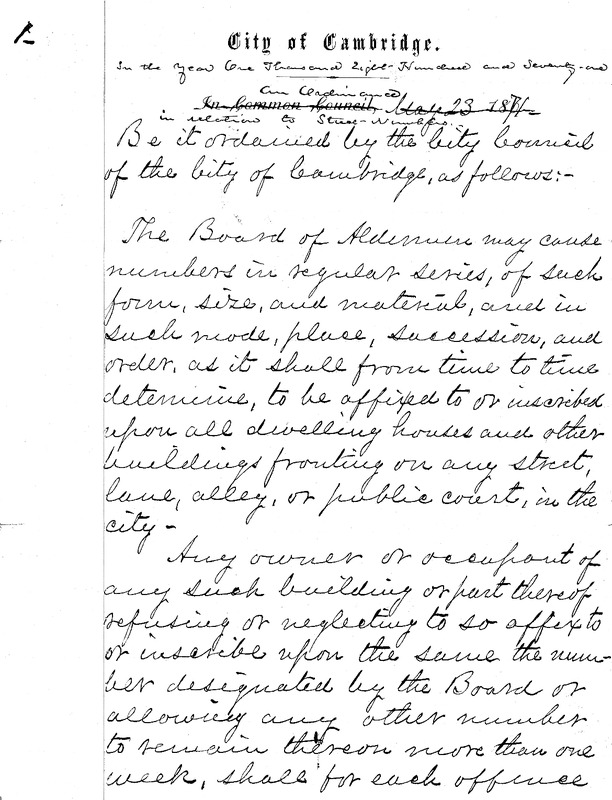 1-
City of Cambridge.
In the year One Thousand Eight Hundred and Seventy-one
An Ordinance
In Common Council, May 23 1871-
in relation to Street-Numbers.
Be it ordained by the City Council
of the City of Cambridge, as follows:-
The Board of Aldermen may cause
numbers in regular series, of such
form, size, and material, and in
such mode, place, succession, and
order, as it shall from time to time
determine, to be affixed to or inscribed
upon all dwelling houses and other
buildings fronting on any street,
lane, alley, or public court, in the
city -
Any owner or occupant of
any such building or part thereof
refusing or neglecting to so affix to
or inscribe upon the same the num-
ber designated by the Board or
allowing any other number
to remain thereon more than one
week, shall for each offence